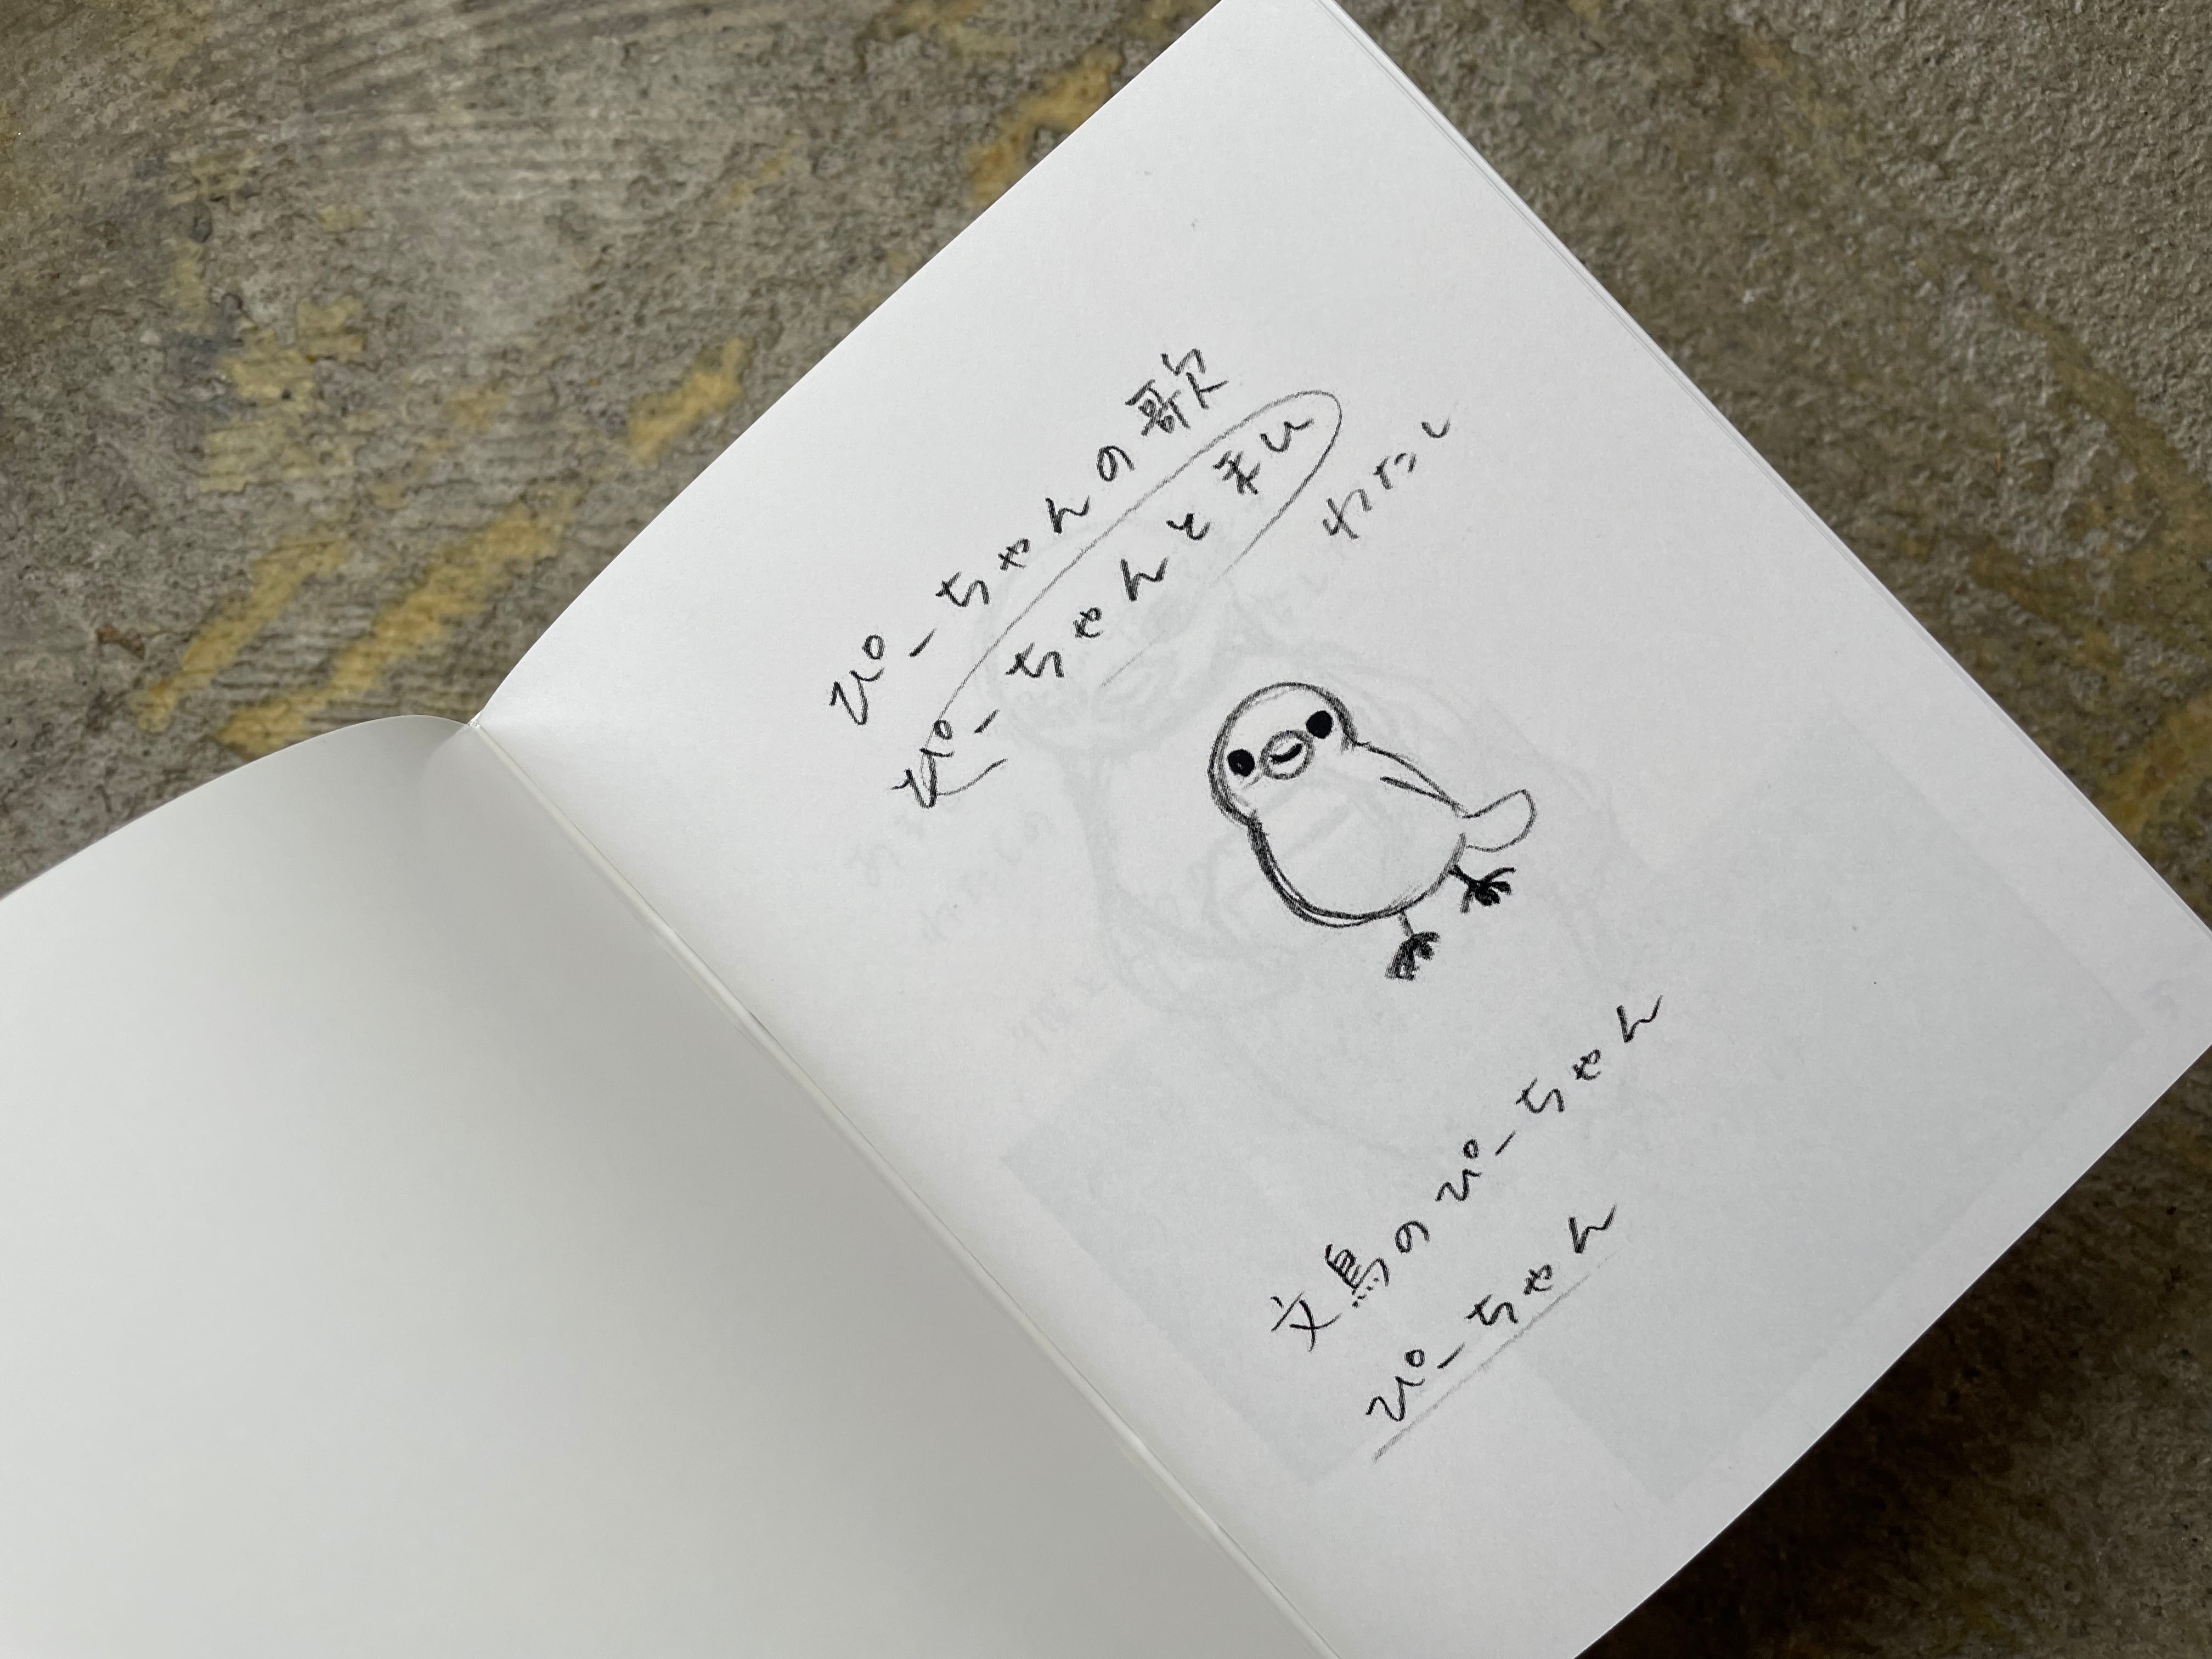 ぴーちゃんの歌
ぴーちゃんとまい
わたし
文鳥のぴーちゃん
ぴーちゃん